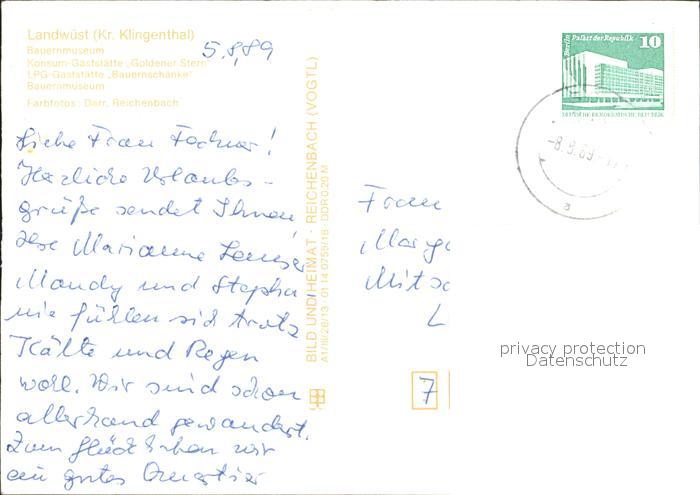 Landwüst (Kr. Klingenthal)
Bauernmuseum
Konsum-Gaststätte „Goldener Stern"
LPG-Gaststätte „Bauernschänke"
Bauernmuseum
Farbfotos: Darr, Reichenbach
5.8.89
Liebe Frau
Herzliche Urlaubs-
grüße sendet Ihnen
Ihre Marianne
Mandy und Stephan
wir fühlen sich trotz
Kälte und Regen
wohl. Wir sind schon
allerhand gewandert.
Zum Glück haben wir
ein gutes Quartier
BILD UND HEIMAT · REICHENBACH (VOGTL)
A1/III/26/13 · 01 14 0759/18 · DDR 0,20 M
Berlin Palast der Republik 10
DEUTSCHE DEMOKRATISCHE REPUBLIK
-8.8.89-
a
Frau
Marg
Mits
L
7
privacy protection
Datenschutz